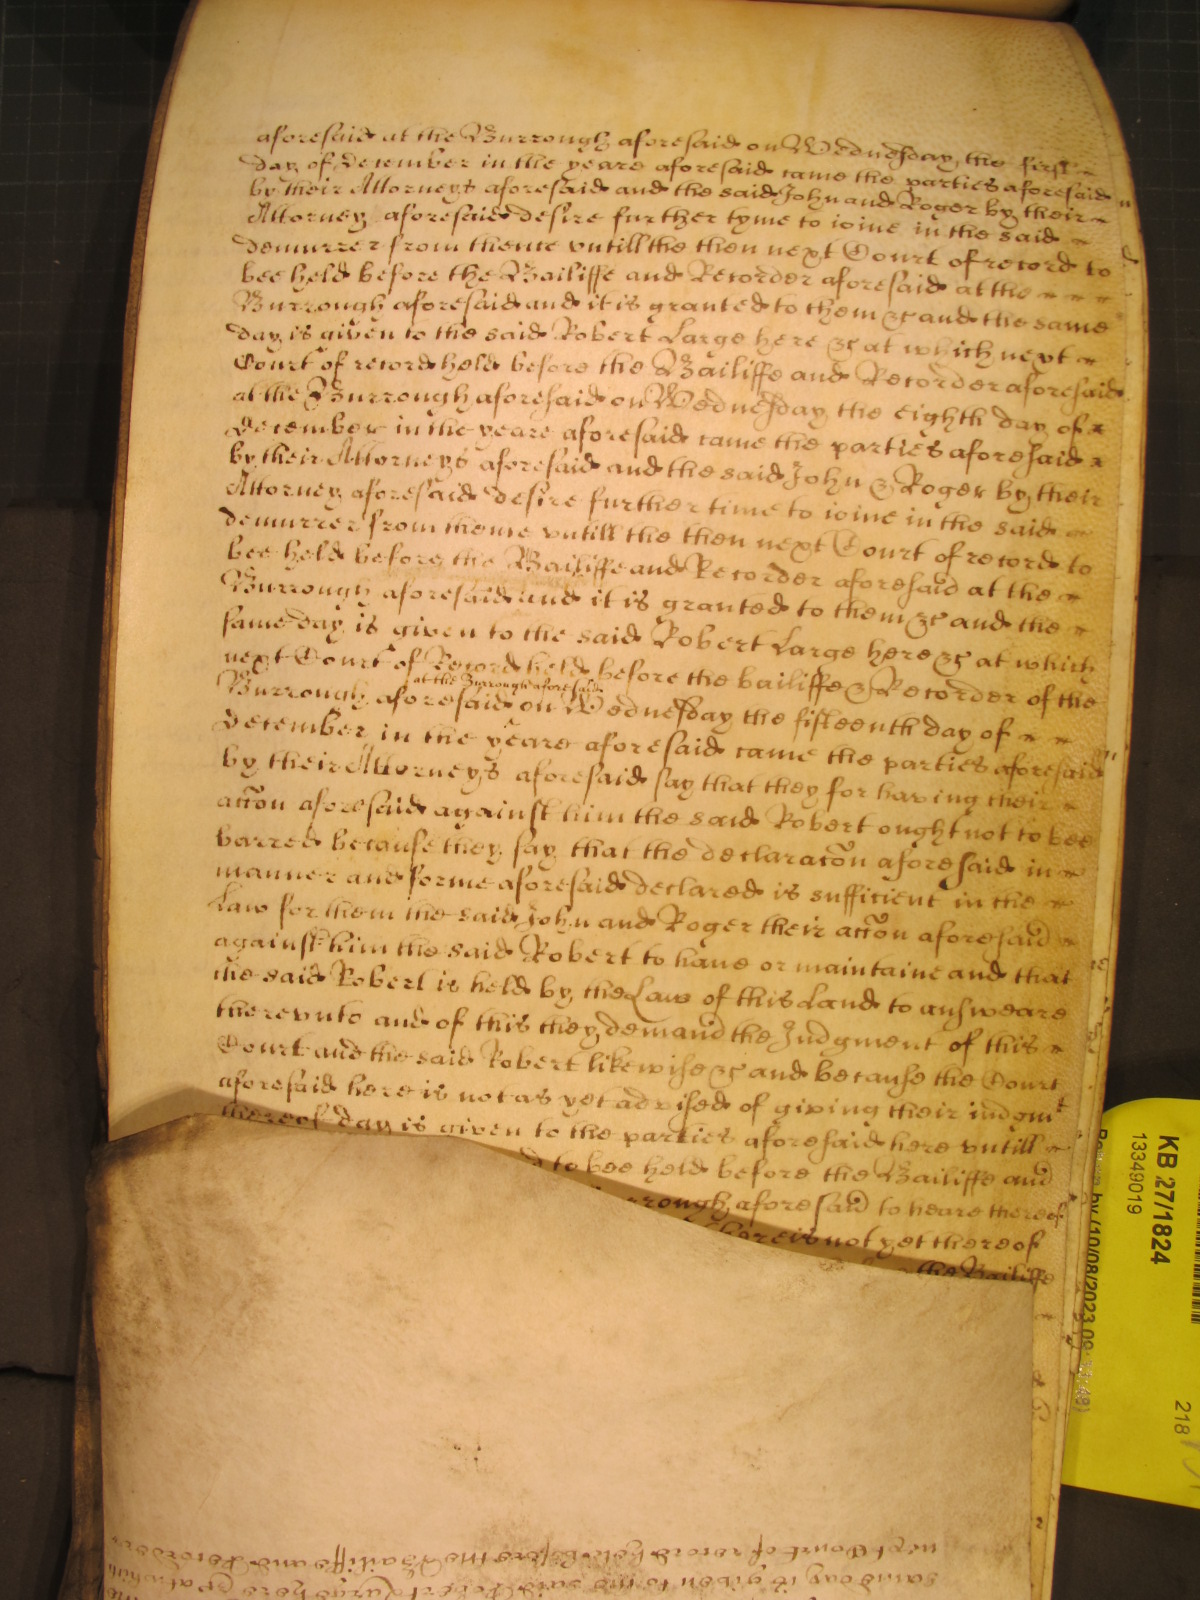 aforesaid at the Burrough aforesaid on Wednesday the first
day of December in the yeare aforesaid came the parties aforesaid
by their Attorneys aforesaid and the said John and Roger by their
Attorney aforesaid desire further tyme to ioine in the said
demurrer from thence vntill the then next Court of record to
bee held before the Bailiffe and Recorder aforesaid at the
Burrough aforesaid and it is granted to them &c and the same
day is given to the said Robert Large here &c at which next
Court of record held before the Bailiffe and Recorder aforesaid
at the Burrough aforesaid on Wednesday the eighth day of
December in the yeare aforesaid came the parties aforesaid
by their Attorneys aforesaid and the said John & Roger by their
Attorney aforesaid desire further time to ioine in the said
demurrer from thence vntill the then next Court of record to
bee held before the Bailiffe and Recorder aforesaid at the
Burrough aforesaid and it is granted to them &c and the
same day is given to the said Robert Large here &c at which
next Court of Record held before the bailiffe & Recorder of the
at the Burrough aforesaid
Burrough aforesaid on Wednesday the fifteenth day of
December in the yeare aforesaid came the parties aforesaid
by their Attorneys aforesaid say that they for having their
accon aforesaid against him the said Robert ought not to bee
barred because they say that the declaracon aforesaid in
manner and forme aforesaid declared is sufficient in the
Law for them the said John and Roger their accon aforesaid
against him the said Robert to haue or maintaine and that
the said Robert is held by the Law of this Land to answeare
therevnto and of this they demand the Judgment of this
Court and the said Robert likewise &c and because the Court
aforesaid here is not as yet advised of giving their iudgmt
thereof day is given to the parties aforesaid here vntill
to bee held before the Bailiffe and
rrough aforesaid to heare thereof
here is not yet thereof
the Bailiffe
KB 27/1824
13349019
by (10/08/2023 09:
218
same day is given to the said Robert Large here &c at which
next Court of record held before the Bailiffe and Recorder